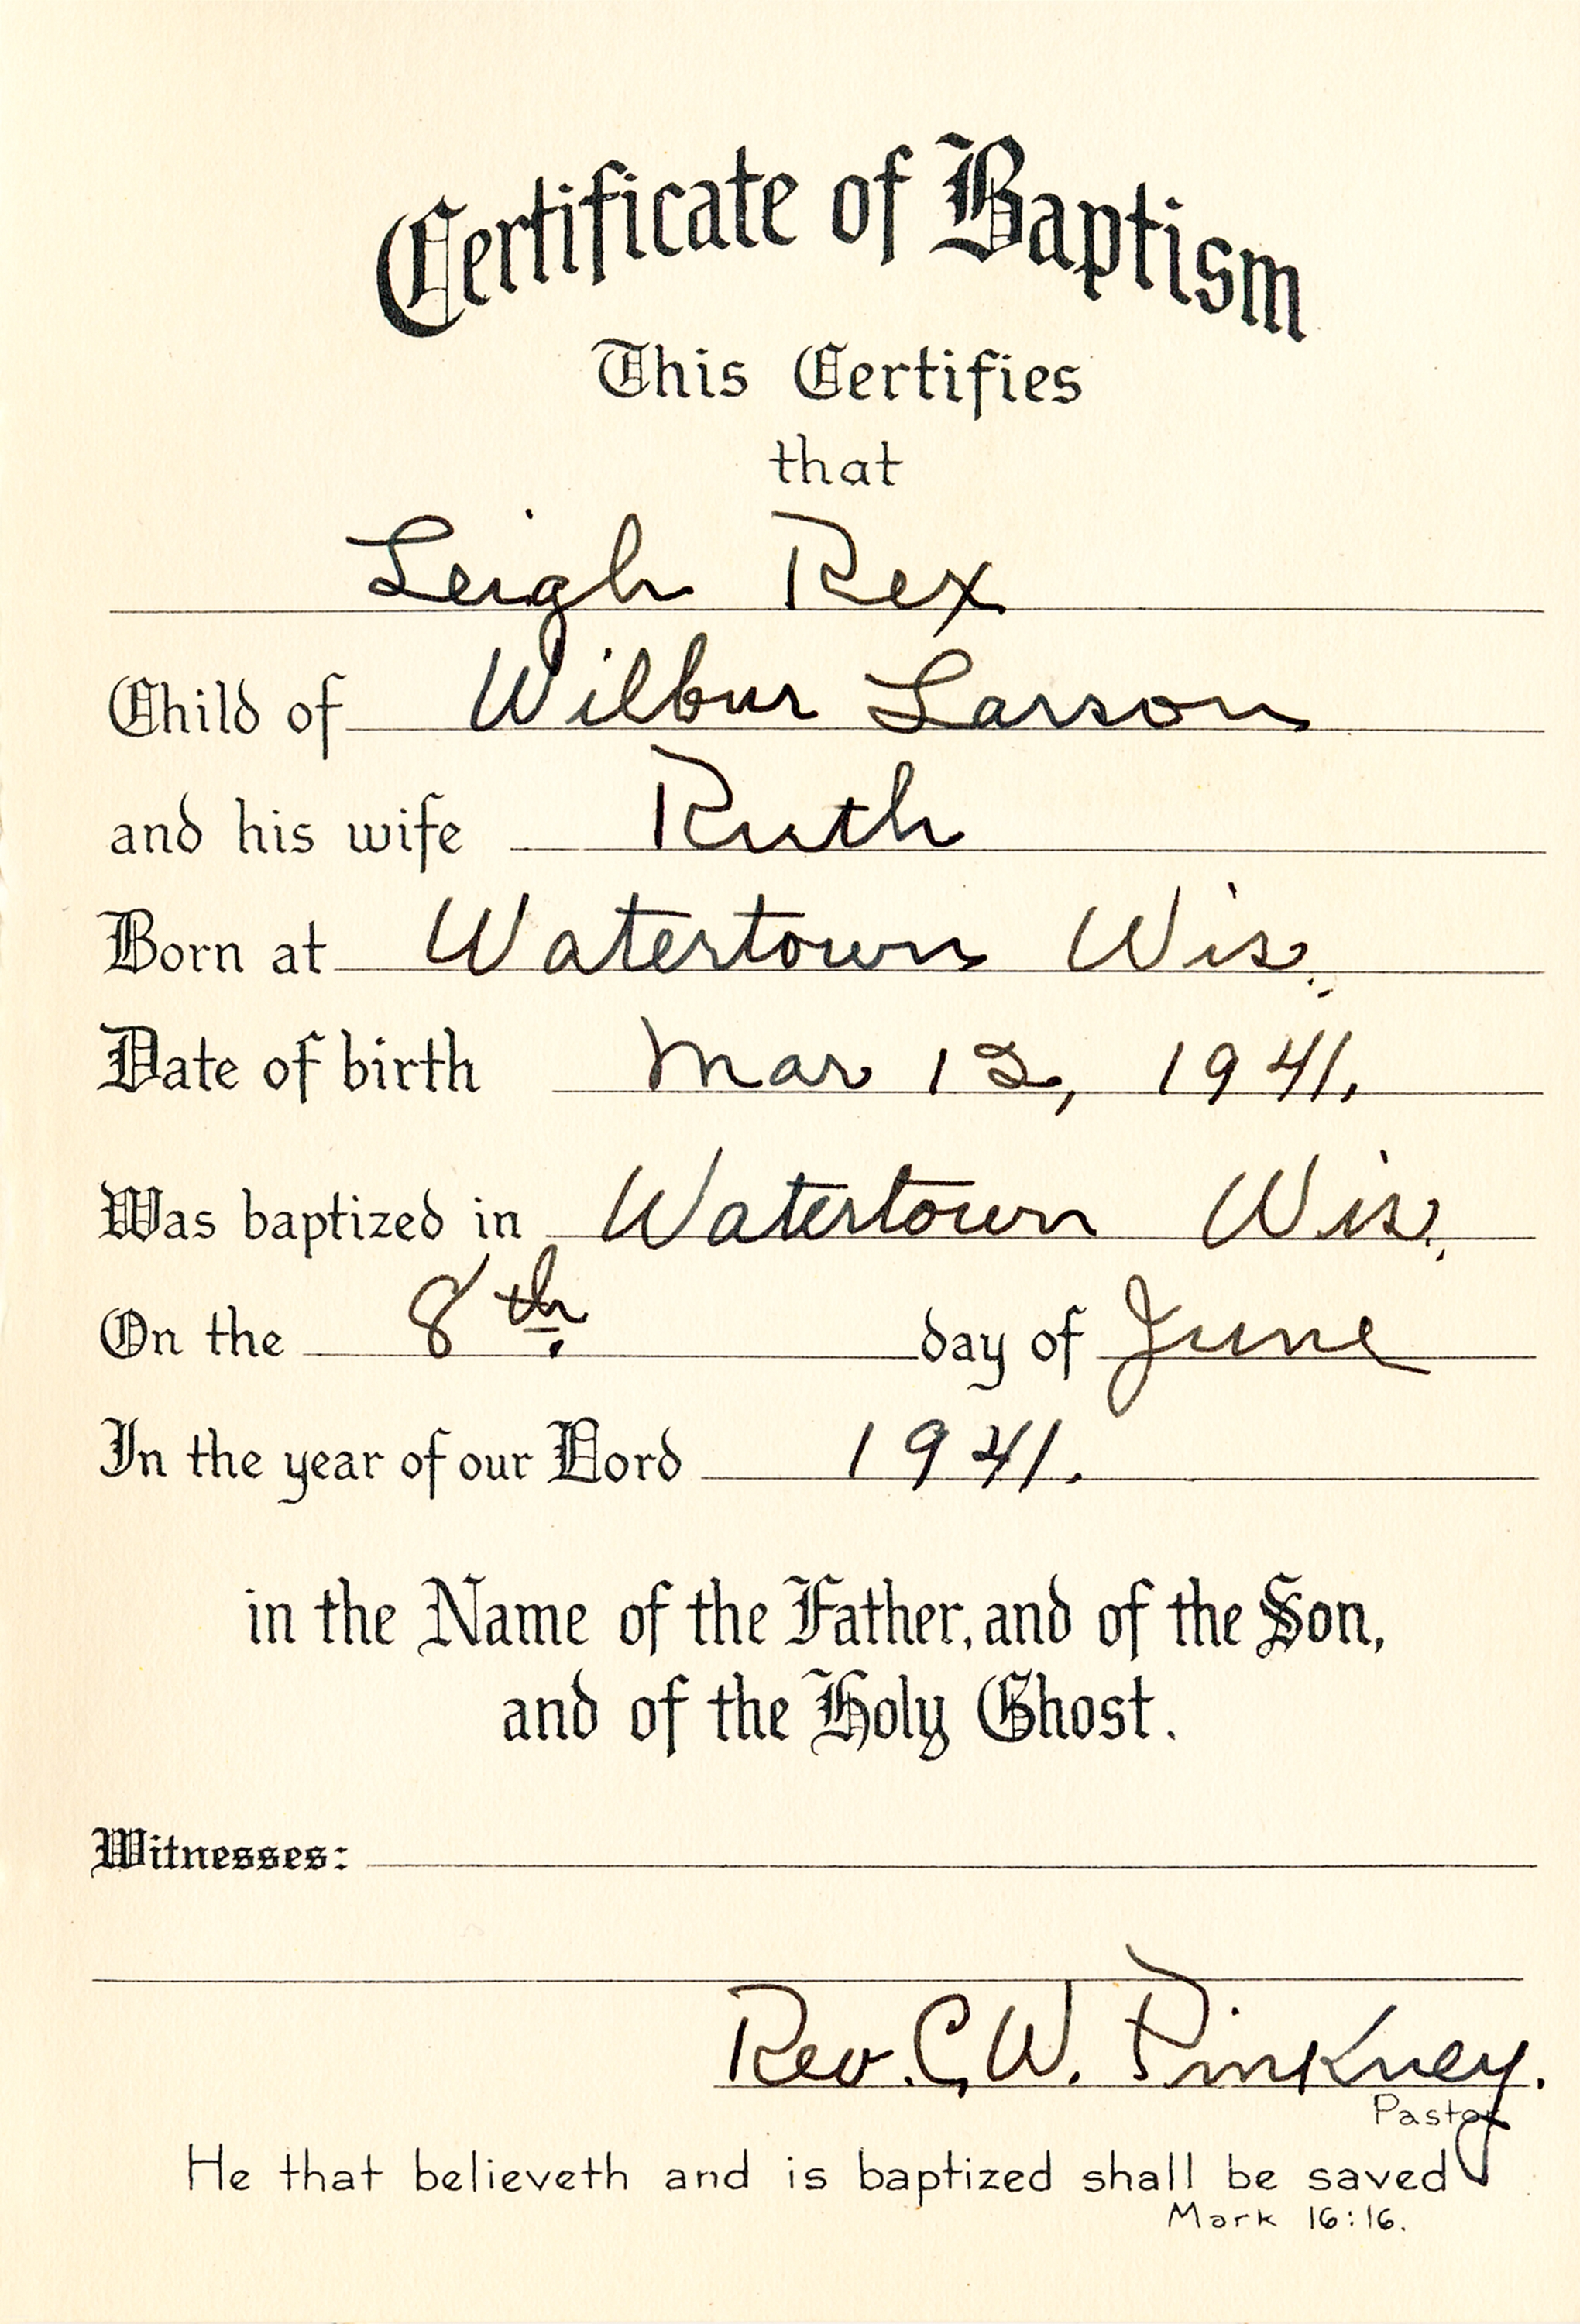 Certificate of Baptism
This Certifies
that
Leigh Rex
Child of Wilbur Larson
and his wife Ruth
Born at Watertown Wis.
Date of birth Mar 12, 1941.
Was baptized in Watertown Wis.
On the 8th. day of June
In the year of our Lord 1941.
in the Name of the Father, and of the Son,
and of the Holy Ghost.
Witnesses:
Rev. C. W. Pinkney.
Pastor
He that believeth and is baptized shall be saved
Mark 16:16.